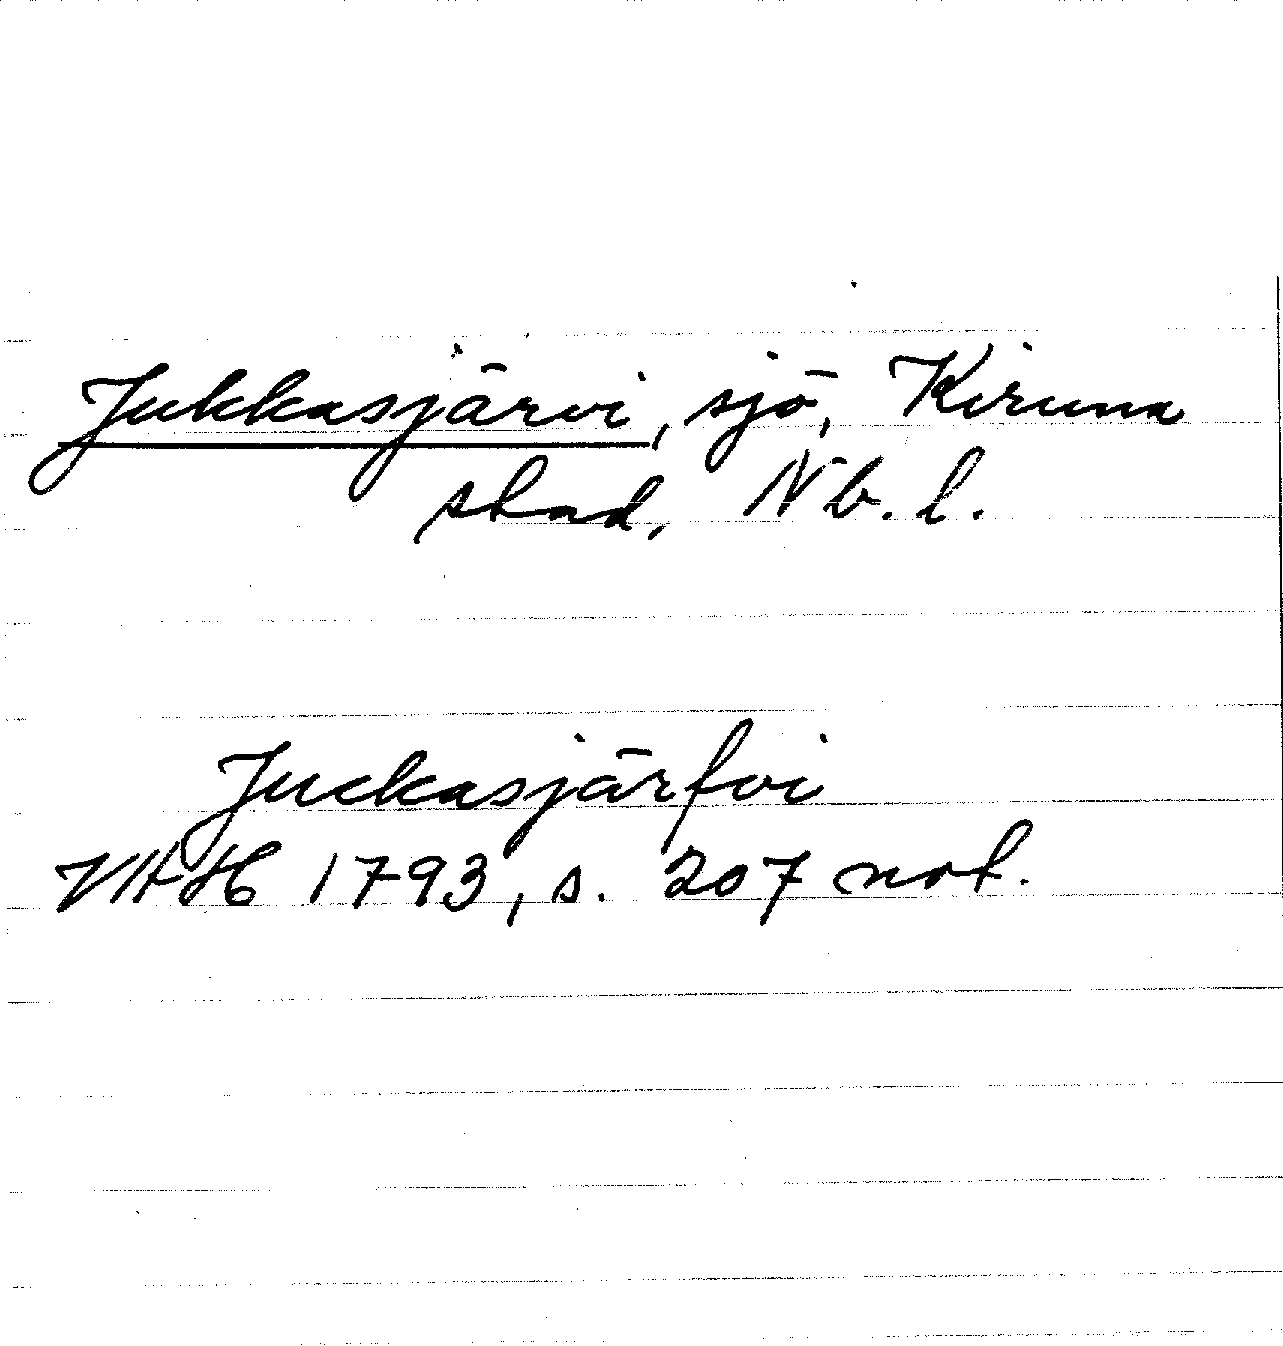 Jukkasjärvi, sjö, Kiruna
stad, Nb. l.
Juckasjärfvi
VAH 1793, s. 207 not.